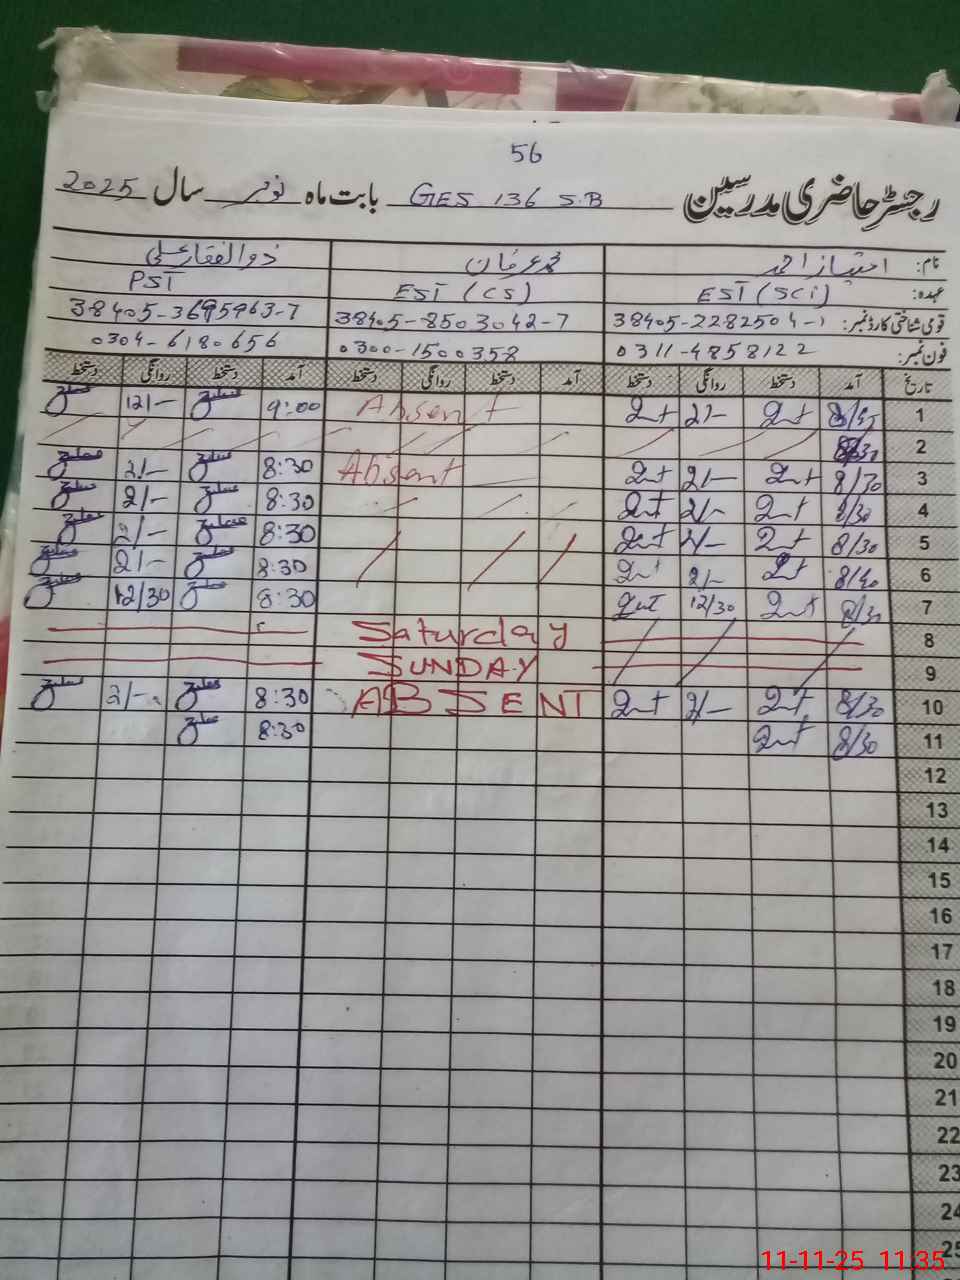 56
رجسٹر حاضری مدرسین GES 136 S.B بابت ماہ نومبر سال 2025
نام: امتیاز احمد محمد عرفان ذوالفقار علی
عہدہ: EST (SCi) EST (CS) PST
قومی شناختی کارڈ نمبر: 38405-2282504-1 38405-8503042-7 38405-3695963-7
فون نمبر: 0311-4858122 0300-1500358 0304-6180656
تاریخ آمد دستخط روانگی دستخط آمد دستخط روانگی دستخط آمد دستخط روانگی دستخط
1 2/- Absent 9:00 12/-
2
3 8/30 2/- Absent 8:30 2/-
4 8/30 2/- 8:30 2/-
5 8/30 2/- 8:30 2/-
6 8/40 2/- 8:30 2/-
7 8/30 12/30 8:30 12/30
8 Saturday
9 SUNDAY
10 8/30 2/- ABSENT 8:30 2/-
11 8/30 8:30
12
13
14
15
16
17
18
19
20
21
22
23
24
25
11-11-25 11:35